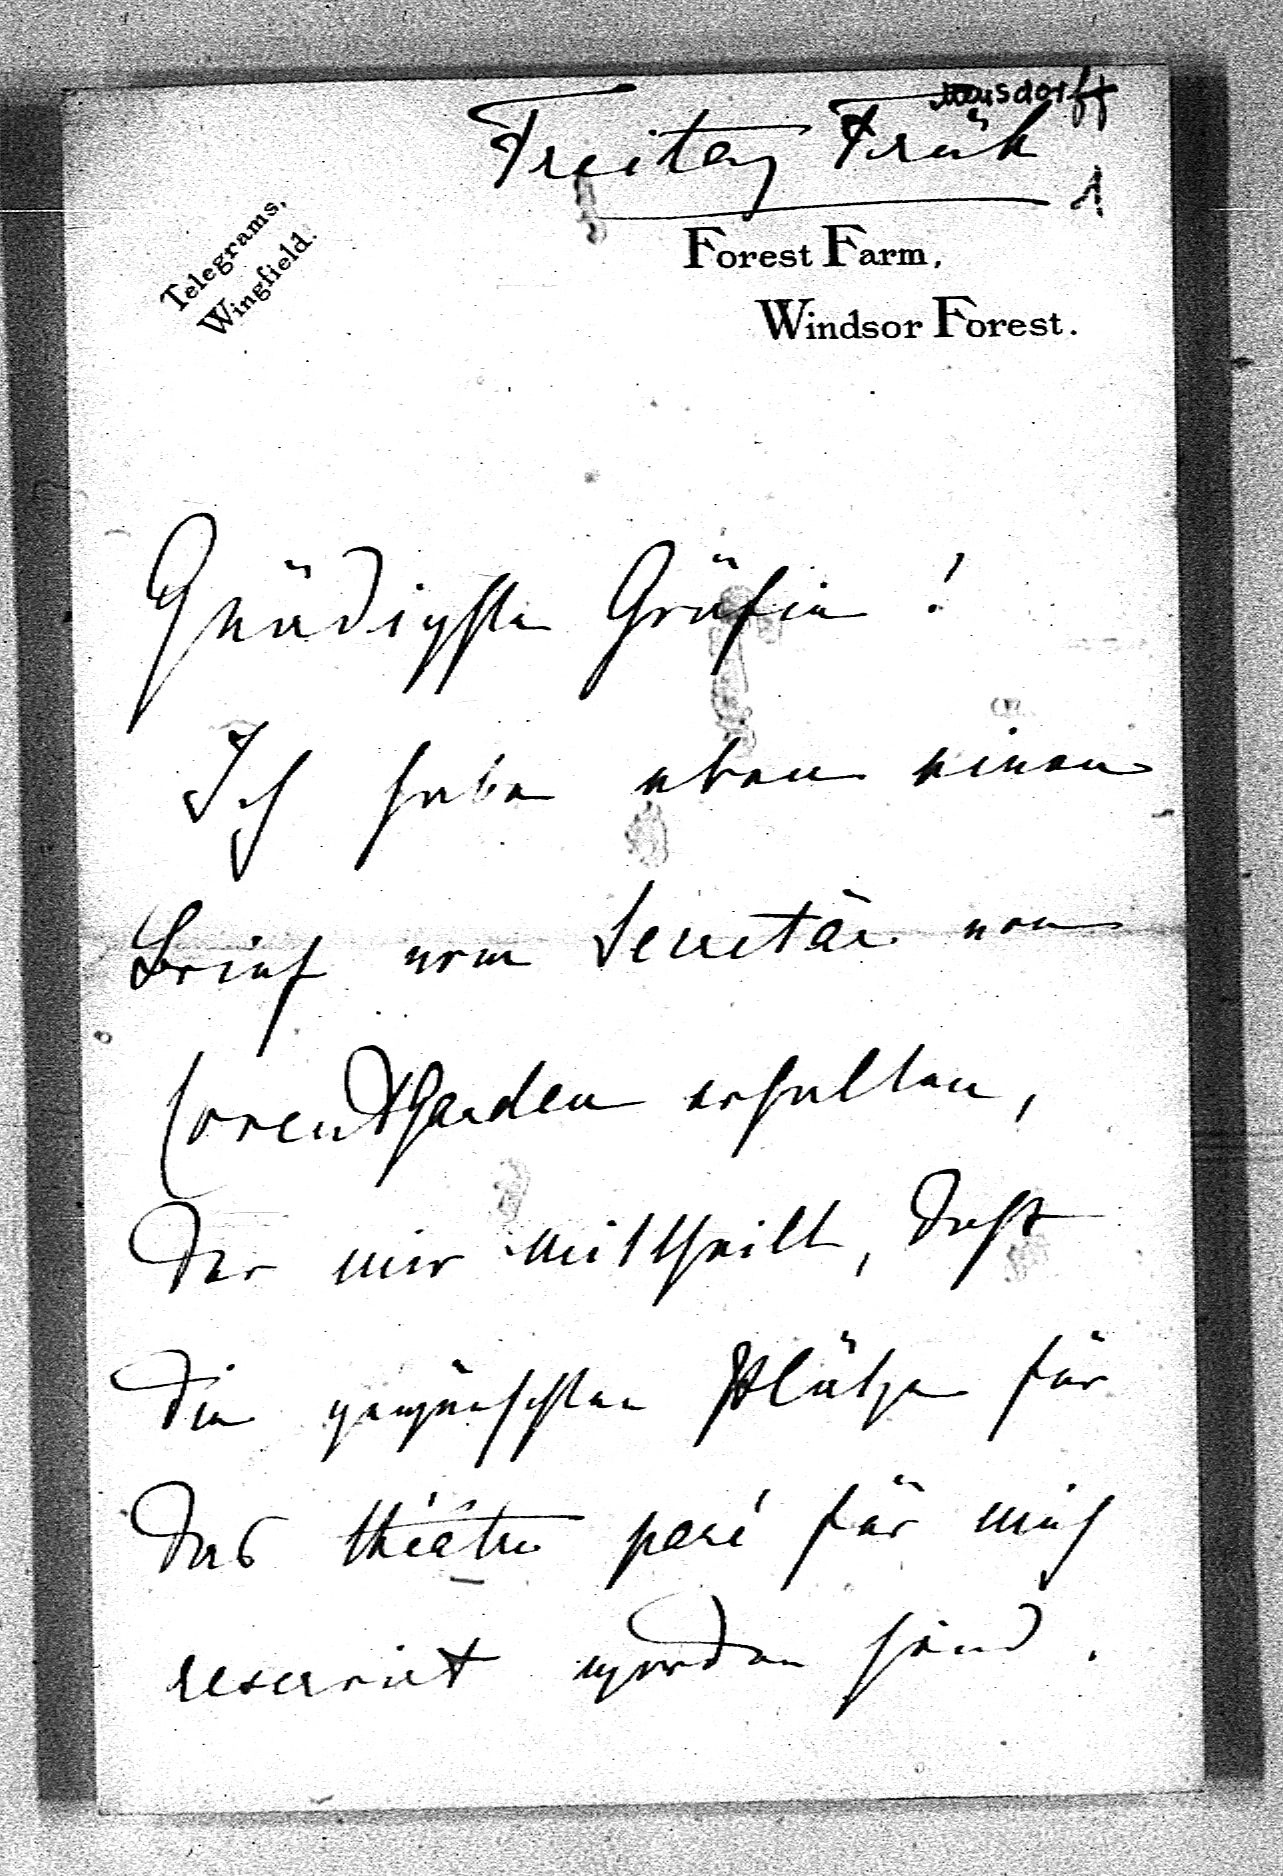 Mensdorff
Freitag Früh
1
Telegrams,
Wingfield.
Forest Farm,
Windsor Forest.
Gnädigste Gräfin !
Ich habe eben einen
Brief vom Secretär von
Covent Garden erhalten,
der mir mittheilt, daß
die gewünschten Plätze für
das théâtre paré für mich
reservirt worden sind.